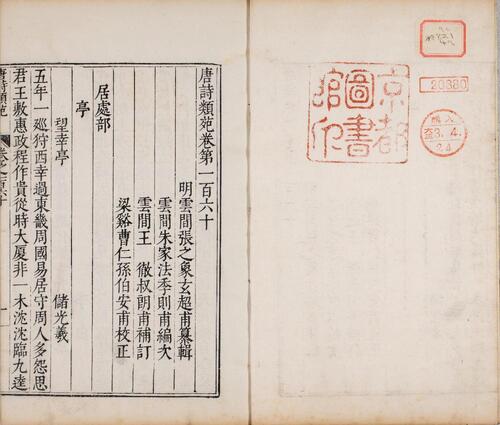 京都
圖書
館印
20380
購入
3.4.
24
唐詩類苑卷第一百六十
明雲間張之象玄超甫纂輯
雲間朱家法季則甫編次
雲間王　徹叔朗甫補訂
梁谿曹仁孫伯安甫校正
居處部
亭
望幸亭　儲光羲
五年一巡狩西幸過東畿周國易居守周人多怨思
君王敷惠政程作貴從時大厦非一木沈沈臨九逵
唐詩類苑